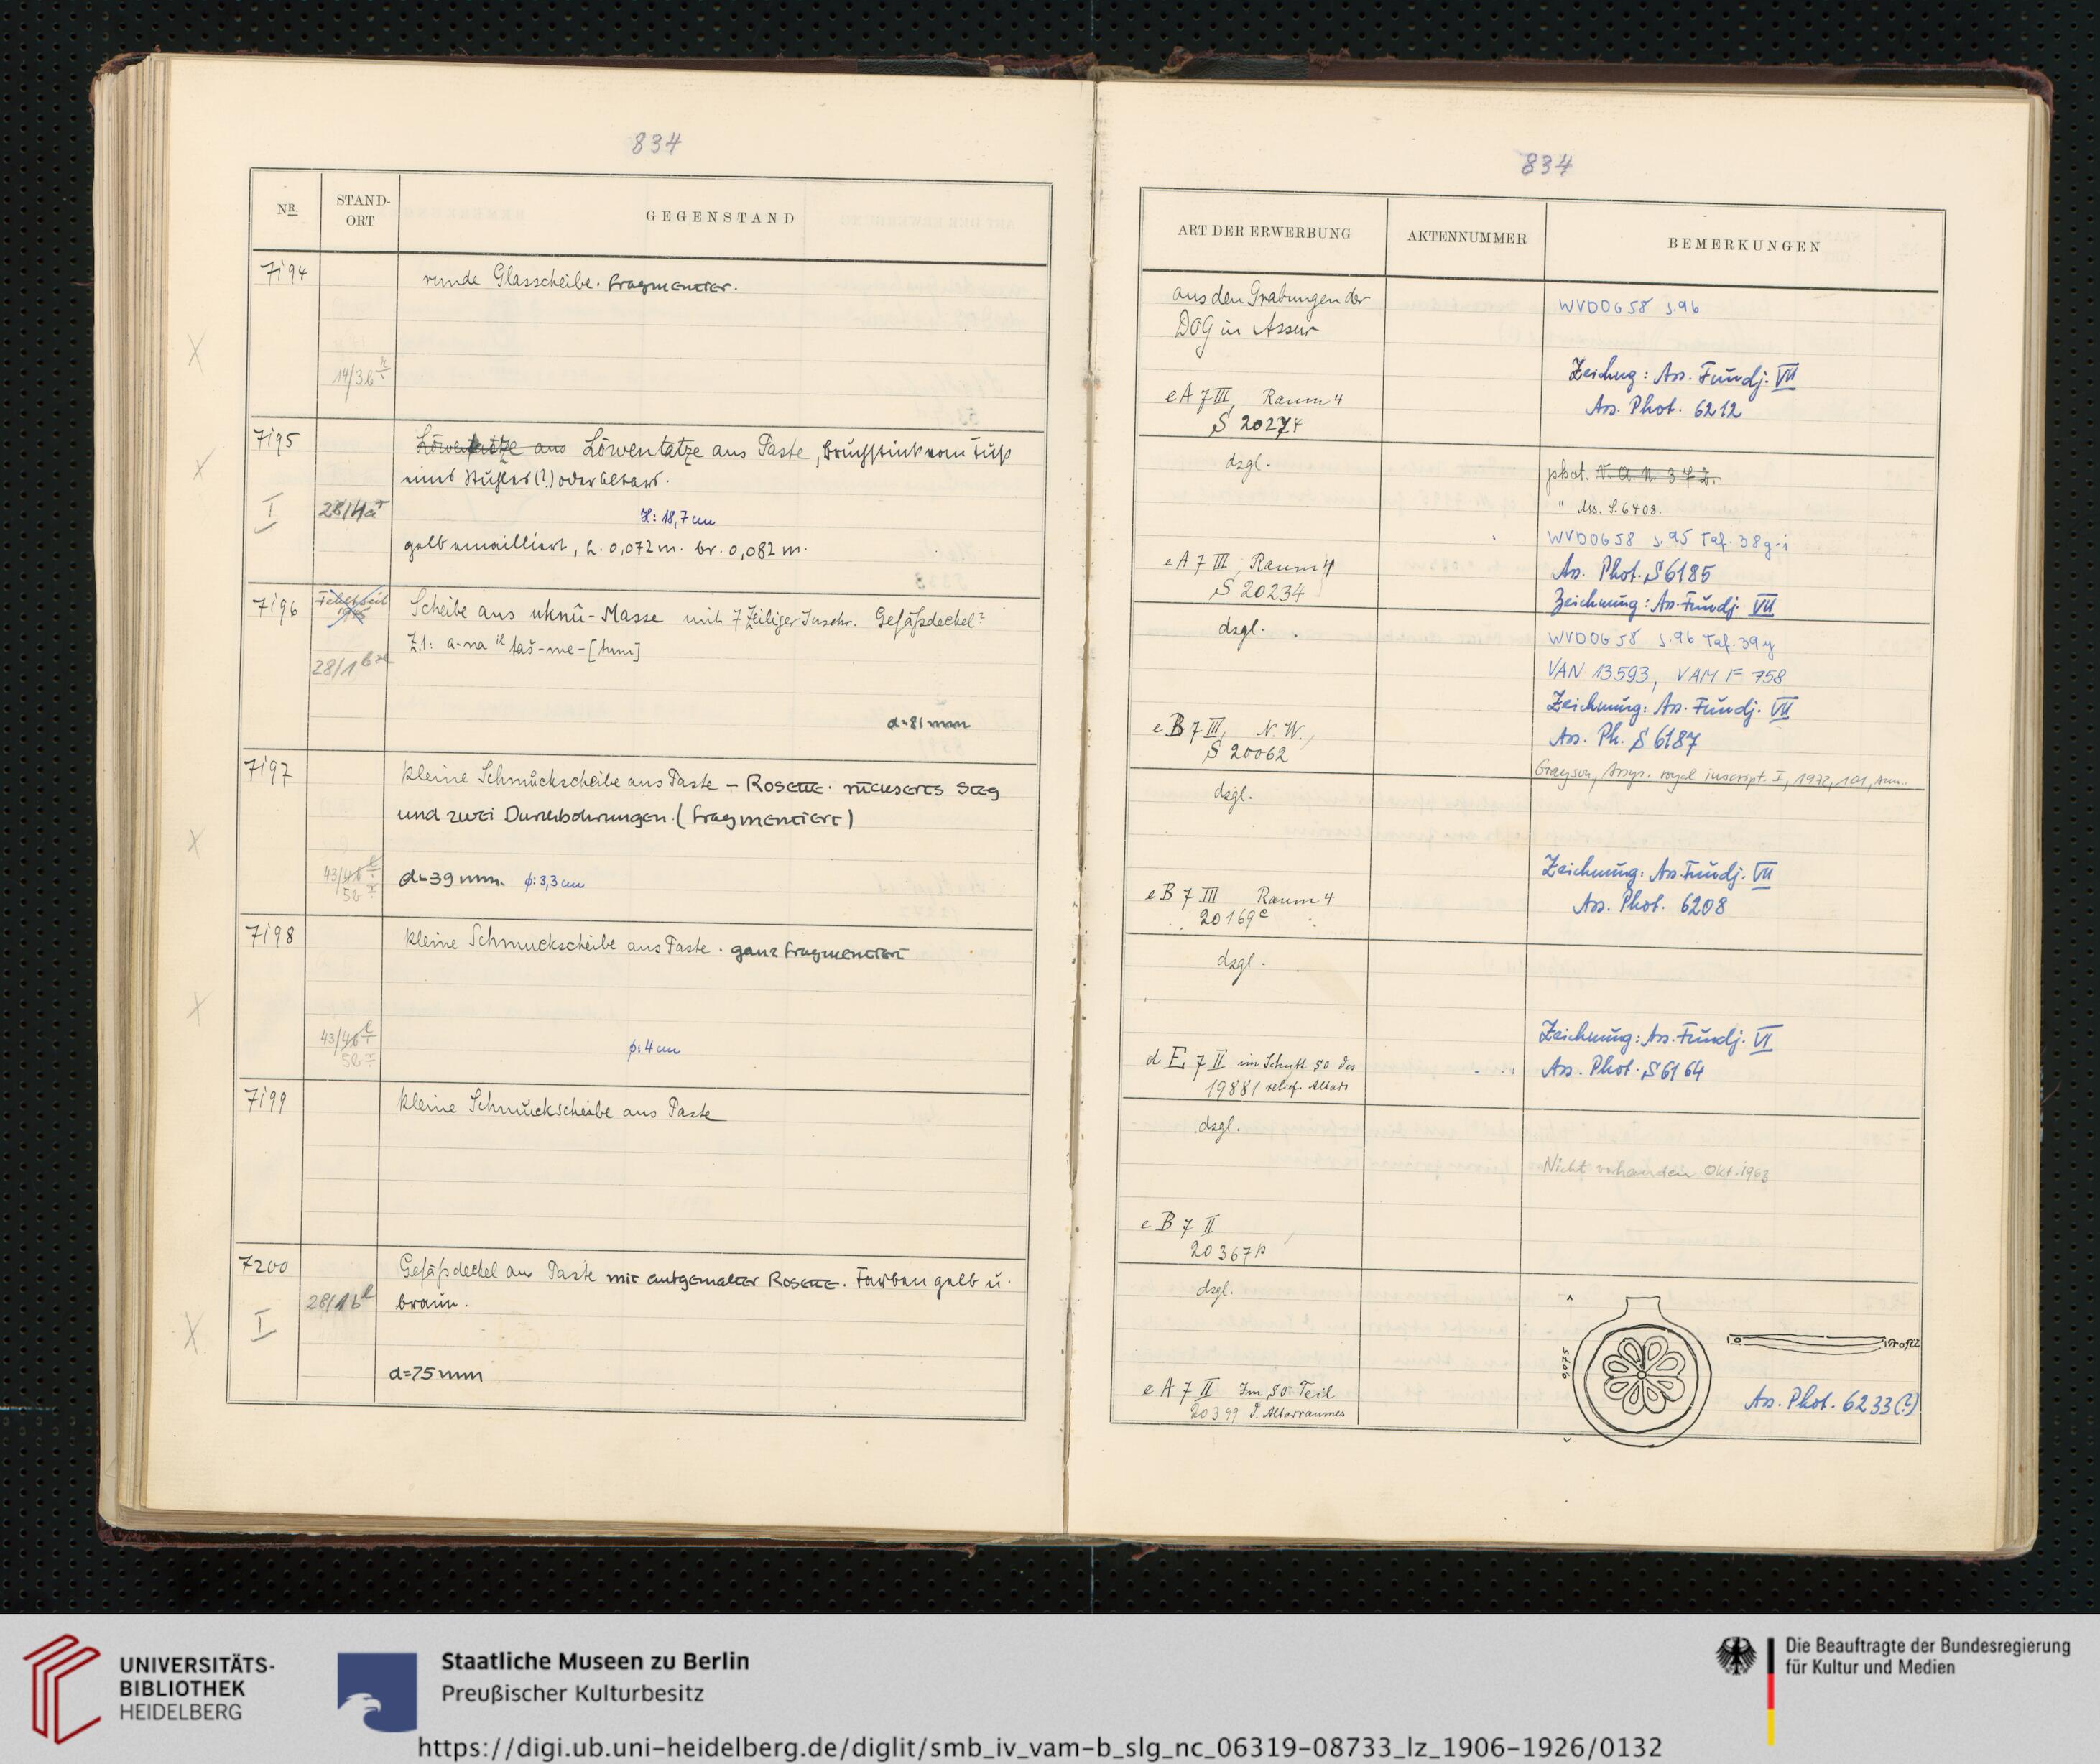 834
NR.
STAND-
ORT
GEGENSTAND
7194
runde Glasscheibe. fragmentier.
14/3b
7195
Löwentatze aus Löwentatze aus Paste, Bruchstück vom Fuß
eines Stuhles(?) oder Altars.
I
28/4a
L: 18,7 cm
gelb emailliert, h. 0,072 m. br. 0,082 m.
7196
Scheibe aus uknû-Masse mit 7 Zeiliger Inschr. Gefäßdeckel?
Z.1: a-na il taš-me-[tum]
28/1
d=81 mm
7197
kleine Schmuckscheibe aus Paste – Rosette. rückseits Steg
und zwei Durchbohrungen. (fragmentiert)
43/4b
5b
d=39 mm. ϕ: 3,3 cm
7198
kleine Schmuckscheibe aus Paste. ganz fragmentiert
43/4b
5b
ϕ: 4 cm
7199
kleine Schmuckscheibe aus Paste
7200
Gefäßdeckel aus Paste mit aufgemalter Rosette. Farben gelb u.
28/1b
braun.
I
d=75 mm
834
ART DER ERWERBUNG
AKTENNUMMER
BEMERKUNGEN
aus den Grabungen der
DOG in Assur
WVDOG 58 S.96
Zeichng: Ass. Fundj. VII
Ass. Phot. 6212
eA7III, Raum 4
S 20274
dsgl.
phot. V.A.N. 372.
" Ass. S. 6408.
WVDOG 58 S.95 Taf. 38g-i
Ass. Phot. S6185
Zeichnung: Ass. Fundj. VII
eA7III, Raum 4
S 20234
dsgl.
WVDOG 58 S.96 Taf. 39y
VAN 13593, VAM F 758
Zeichnung: Ass. Fundj. VII
Ass. Ph. S 6187
Grayson, Assyr. royal inscript. I, 1972, 101, Anm.
eB7III, N.W.,
S 20062
dsgl.
Zeichnung: Ass. Fundj. VII
Ass. Phot. 6208
eB7III Raum 4
20169c
dsgl.
Zeichnung: Ass. Fundj. VI
Ass. Phot. S6164
dE7II im Schutt SO des
19881 relief. Altars
dsgl.
Nicht vorhanden Okt. 1963
eB7II
20367p
dsgl.
0,075
Profil
Ass. Phot. 6233(?)
eA7II Im SO Teil
20399 d. Altarraumes
UNIVERSITÄTS-
BIBLIOTHEK
HEIDELBERG
Staatliche Museen zu Berlin
Preußischer Kulturbesitz
Die Beauftragte der Bundesregierung
für Kultur und Medien
https://digi.ub.uni-heidelberg.de/diglit/smb_iv_vam-b_slg_nc_06319-08733_lz_1906-1926/0132